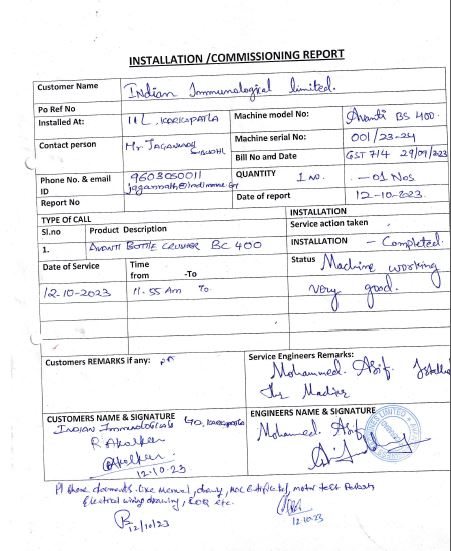 INSTALLATION /COMMISSIONING REPORT
Customer Name Indian Immunological limited.
Po Ref No
Installed At: IIL, KARKAPATLA
Machine model No: Avanti BS 400.
Contact person Mr. JAGANNATH
Machine serial No: 001/23-24
Bill No and Date GST 714 29/09/2023
Phone No. & email ID 9603050011
QUANTITY 1 NO. - 01 Nos
Report No
Date of report 12-10-2023.
TYPE OF CALL
INSTALLATION
Sl.no Product Description
Service action taken
1. AVANTI BOTTLE CRUSHER BC 400
INSTALLATION - Completed.
Date of Service Time from -To
Status Machine working very good.
12-10-2023 11.55 Am To
Customers REMARKS if any:
Service Engineers Remarks:
Mohammed. Asif. Installed
The Machine
CUSTOMERS NAME & SIGNATURE
INDIAN Immunologicals KARKAPATLA
R. Akolkar
12-10-23
ENGINEERS NAME & SIGNATURE
Mohamed. Asif
Electrical wiring drawing, etc.
12/10/23
12.10.23